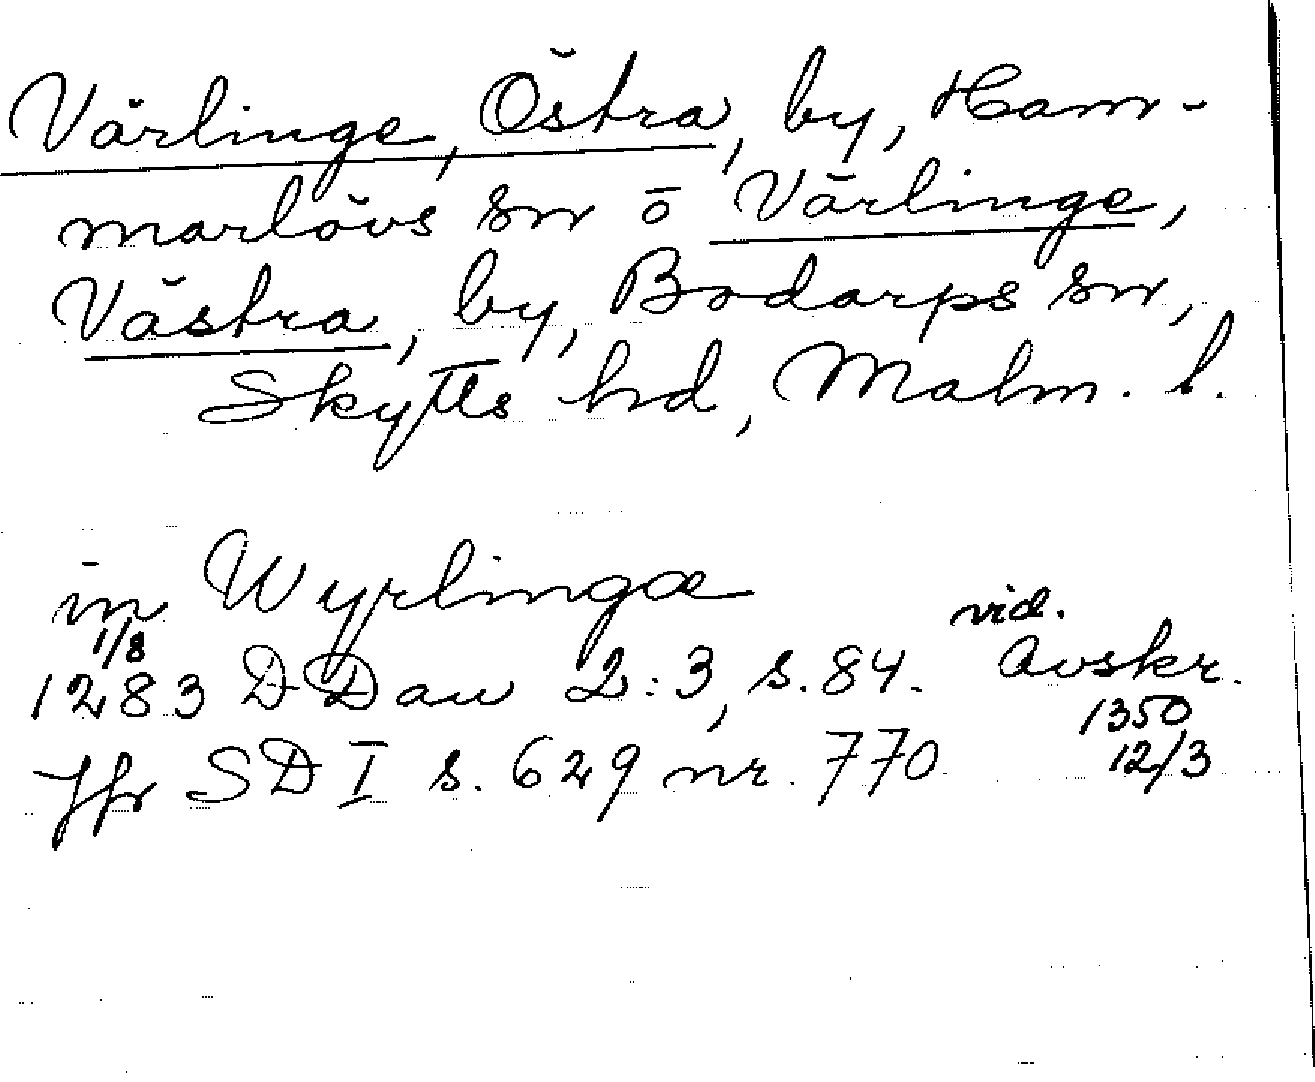 Värlinge, Östra, by, Ham-
marlövs sn o Värlinge,
Västra, by, Bodarps sn,
Skytts hd, Malm. l.
in Wyrlingæ
1/8
1283 DDan 2:3, s. 84. vid. Avskr.
1350
12/3
Jfr SD I s. 629 nr. 770